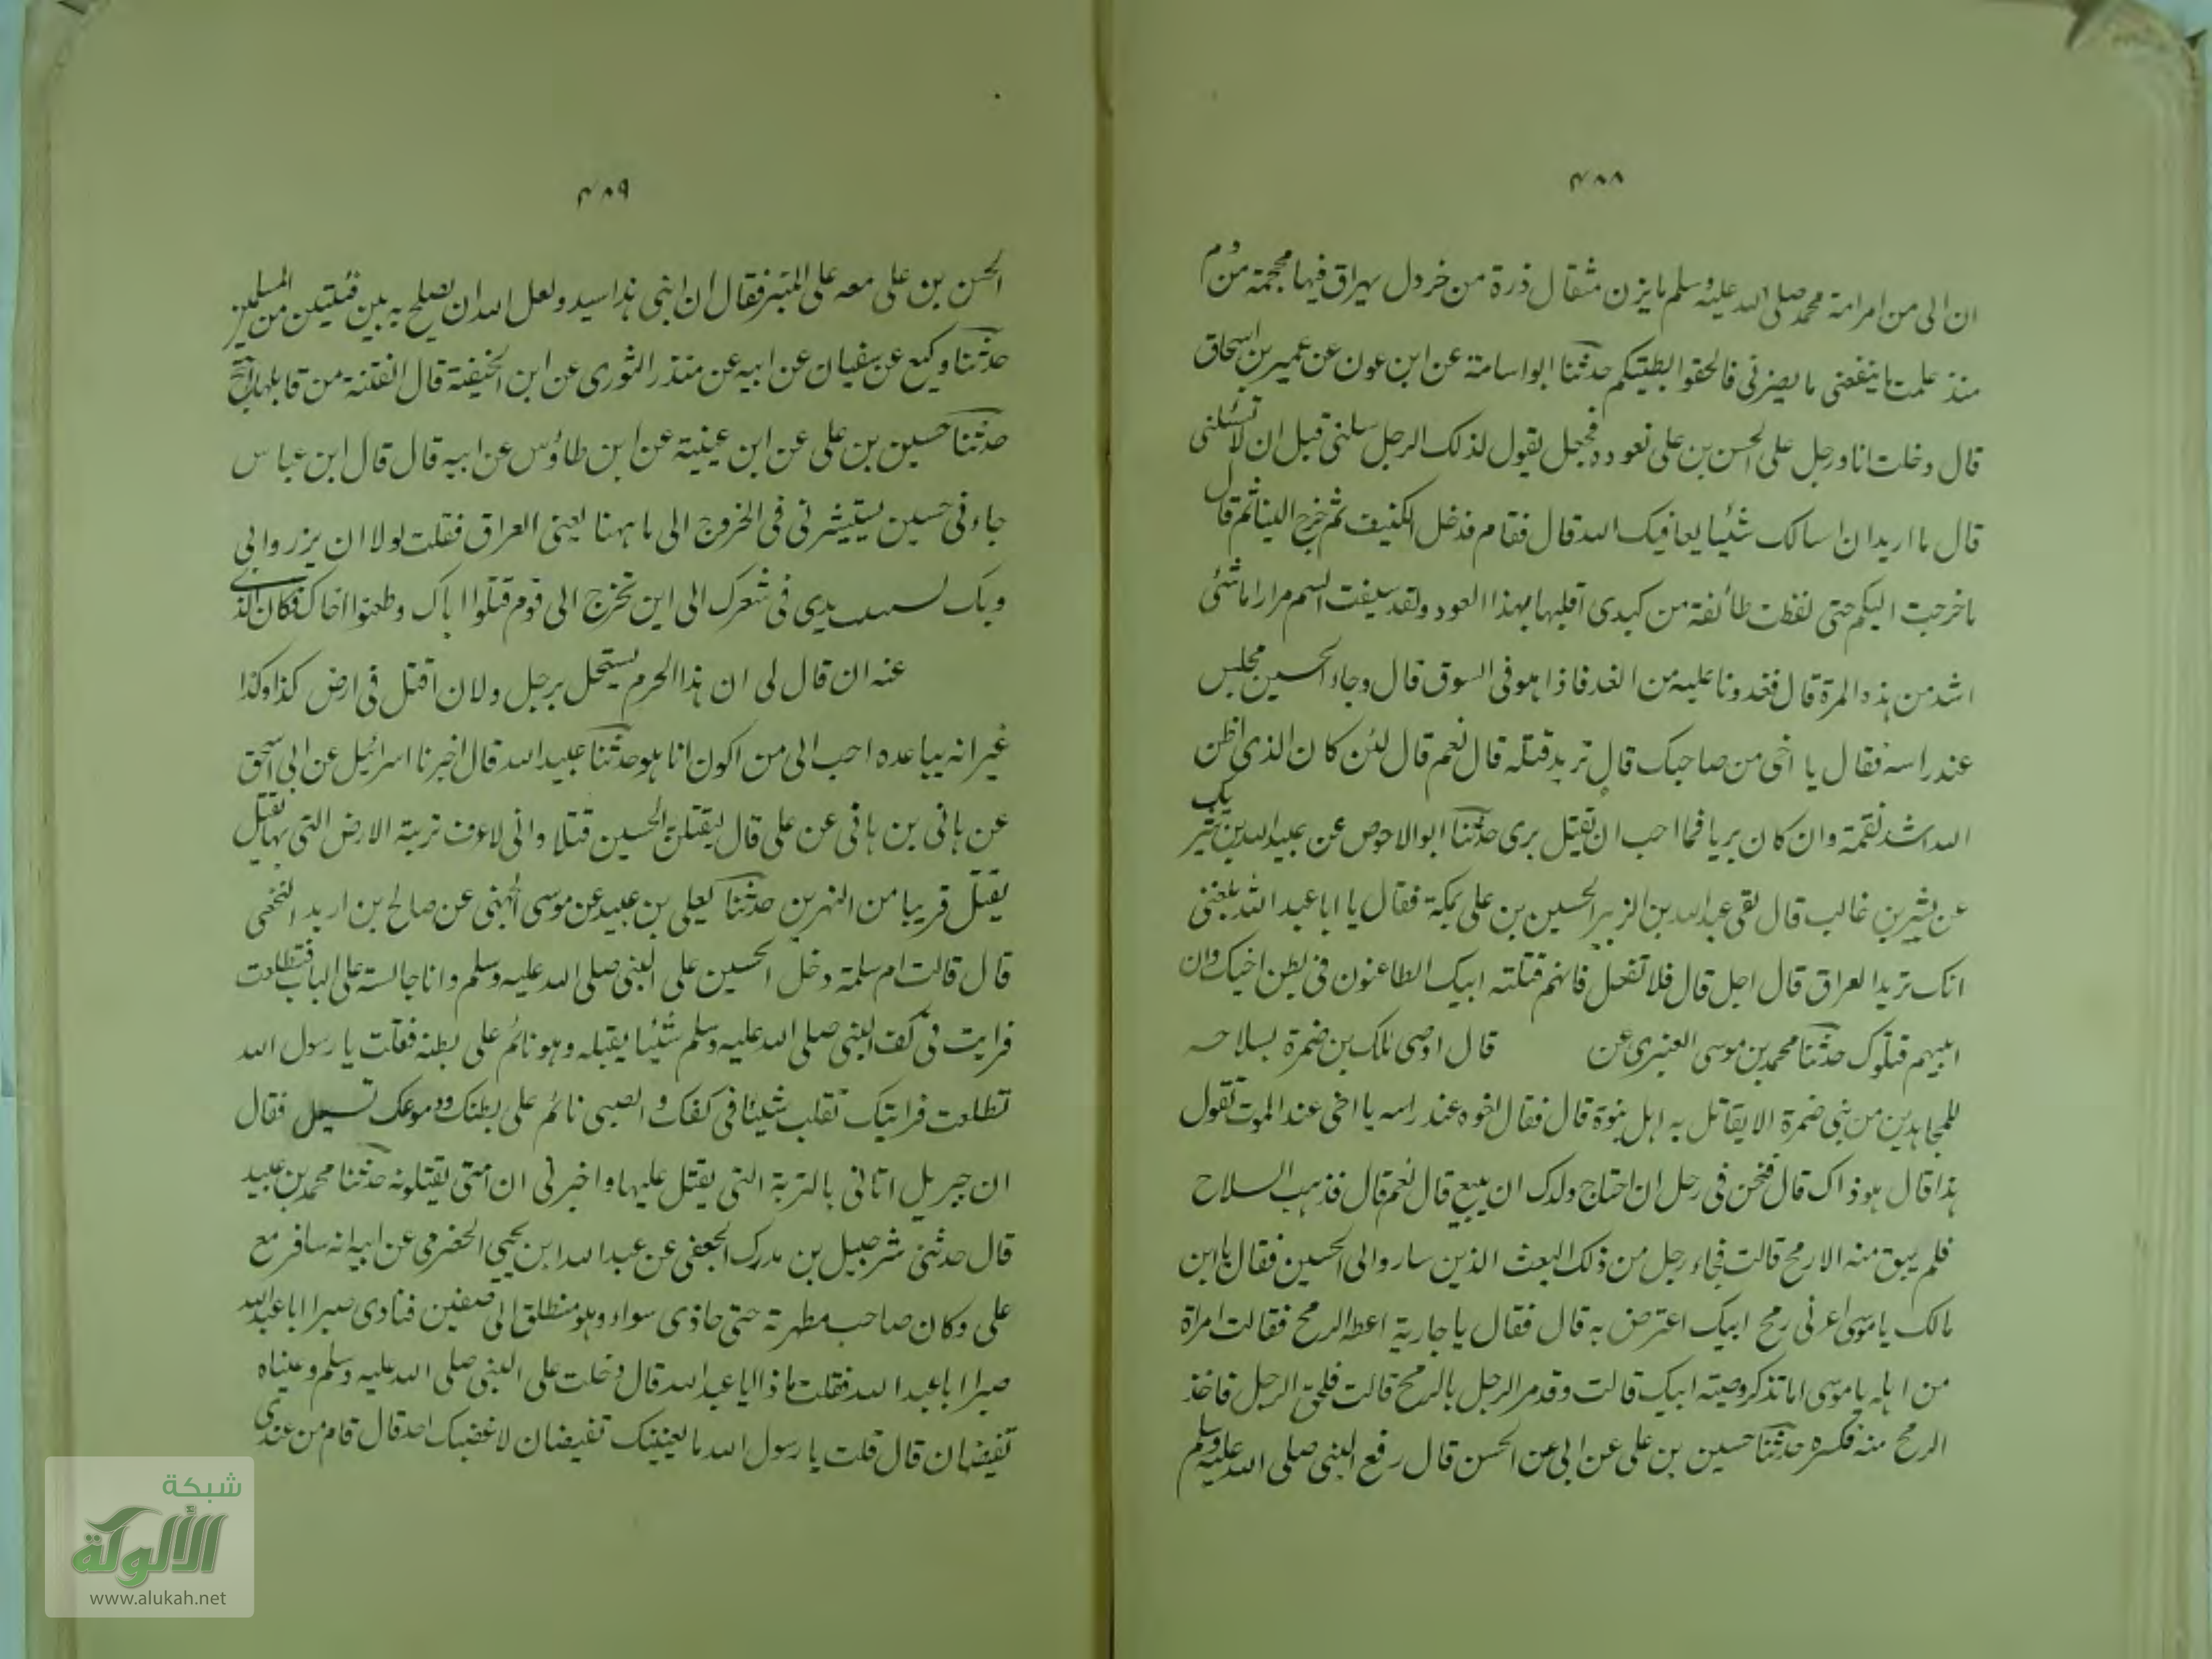 ٤٨٨
ان الى من امر امة محمد صلى الله عليه وسلم ما يزن مثقال ذرة من خردل يهراق فيها محجمة من دم
منذ علمت ما ينفعنى ما يضرنى فالحقوا بطيتكم حدثنا ابو اسامة عن ابن عون عن عمير بن اسحاق
قال دخلت انا ورجل على الحسن بن على نعوده فجعل يقول لذلك الرجل سلنى قبل ان لا تسئلنى
قال ما اريد ان اسالك شئيا يعافيك الله قال فقام فدخل الكنيف ثم خرج الينا ثم قال
ما خرجت اليكم حتى لفظت طائفة من كبدى اقلبها بهذا العود ولقد سقيت السم مرارا ما شئى
اشد من هذه المرة قال فغدونا عليه من الغد فاذا هو فى السوق قال وجاء الحسين فجلس
عند راسه فقال يا اخى من صاحبك قال تريد قتله قال نعم قال لئن كان الذى اظن
الله اشد نقمة وان كان بريا فما احب ان يقتل برى حدثنا ابو الاحوص عن عبيد الله بن شريك
عن بشر بن غالب قال لقى عبد الله بن الزبير الحسين بن على بمكة فقال يا ابا عبد الله بلغنى
انك تريد العراق قال اجل قال فلا تفعل فانهم قتلته ابيك الطاعنون فى بطن اخيك وان
اتيتهم قتلوك حدثنا محمد بن موسى العنبرى عن قال اوصى مالك بن ضمرة بسلاحه
للمجاهدين من بنى ضمرة الا يقاتل به اهل نبوة قال فقال اخوه عند راسه يا اخى عند الموت تقول
هذا قال هو ذاك قال فنحن فى رجل ان احتاج ولدك ان يبيع قال نعم قال فذهب السلاح
فلم يبق منه الا رمح قالت فجاء رجل من ذلك البعث الذين ساروا الى الحسين فقال يا ابن
مالك يا موسى اعرنى رمح ابيك اعترض به قال فقال يا جارية اعطه الرمح فقالت امراة
من اهله يا موسى اما تذكر وصيته ابيك قالت وقد مر الرجل بالرمح قالت فلحق الرجل فاخذ
الرمح منه فكسره حدثنا حسين بن على عن ابى عن الحسن قال رفع النبى صلى الله عليه وسلم
٤٨٩
الحسن بن على معه على المنبر فقال ان ابنى هذا سيد ولعل الله ان يصلح به بين فئيتين من المسلمين
حدثنا وكيع عن سفيان عن ابيه عن منذر الثورى عن ابن الحنيفة قال الفتنة من قابلها
حدثنا حسين بن على عن ابن عينية عن ابن طاؤس عن ابيه قال قال ابن عباس
جاءنى حسين يستيشرنى فى الخروج الى ما ههنا يعنى العراق فقلت لولا ان يزروا بى
وبك يدى فى شعرك الى اين تخرج الى قوم قتلوا اباك وطعنوا اخاك فكان الذى
عنه ان قال لى ان هذا الحرم يستحل برجل ولان اقتل فى ارض كذا وكذا
غير انه يباعده احب الى من اكون انا هو حدثنا عبيد الله قال اخبرنا اسرائيل عن ابى اسحق
عن هانى بن هانى عن على قال ليقتلن الحسين قتلا وانى لاعرف تربة الارض التى بها يقتل
يقتل قريبا من النهرين حدثنا يعلى بن عبيد عن موسى الجهنى عن صالح بن اربد النخعى
قال قالت ام سلمة دخل الحسين على النبى صلى الله عليه وسلم وانا جالسة على الباب فتطلعت
فرايت فى كف النبى صلى الله عليه وسلم شئيا يقبله وهو نائم على بطنه فقلت يا رسول الله
تطلعت فرايتك تقلب شيئا فى كفك والصبى نائم على بطنك ودموعك تسيل فقال
ان جبريل اتانى بالتربة التى يقتل عليها واخبرنى ان امتى يقتلونه حدثنا محمد بن عبيد
قال حدثنى شرحبيل بن مدرك الجعفى عن عبد الله ابن يحيى الحضرمى عن ابيه انه سافر مع
على وكان صاحب مطهرته حتى حاذى سواء وهو منطلق الى صفين فنادى صبرا ابا عبد الله
صبرا ابا عبد الله فقلت ماذا ابا عبد الله قال دخلت على النبى صلى الله عليه وسلم وعيناه
تفيضان قال قلت يا رسول الله ما لعينيك تفيضان لاغضبك احد قال قام من عندى
شبكة
الألوكة
www.alukah.net